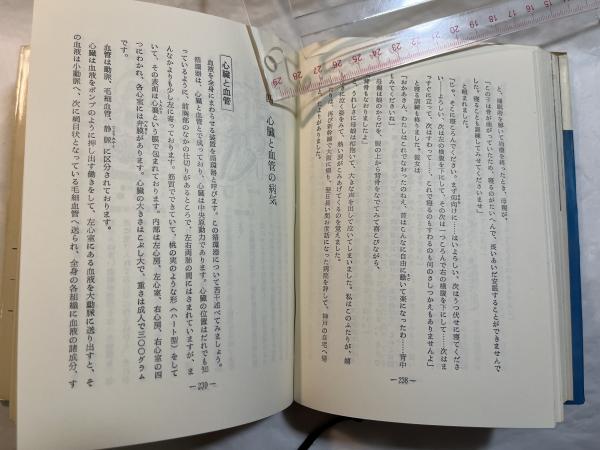 と、睡眠術を解いて治療を終ったとき、母親が、
「この子は脊柱が曲がっていたから、寝るのがたいへんで、長いあいだ安眠することができませんで
した。寝ることも訓練してみせてくださいませ」
と頼まれました。
「じゃ、そこに寝ころんでください。まず仰向けに……はいよろしい、次はうつ伏せに寝てくださ
い……よろしい、次は左の横腹を下にして、その次は一つころんで右の横腹を下にして……次はま
っすぐに立って、次はすわって……、これで寝るのもすわるのも何のさしつかえもありませんよ」
と寝る訓練も終りました。彼女は
「おかあさん、わたしはこれでなおったのねえ、前はこんなに自由に動いて楽になったわ……背中
もみてね」
母親は娘のからだを、服の上から背骨をなでてみて喜びながら、
背骨もなおりましたよ」
うれしさに母娘は抱擁して、大きな声を出して泣いてしまいました。私はこのふたりが、嬉
き泣く姿をみて、熱い涙がこみあげてくるのを覚えました。
は、再び新幹線で大阪に帰り、翌日長い間お世話になった病院を辞して、神戸の自宅へ帰
たよりがありました。
— 238 —
心臓と血管の病気
心臓と血管
血液を全身にまわらせる装置を循環器と呼びます。この循環器について若干述べてみましょう。
循環器は、心臓と血管とで成っており、心臓は中央原動力であります。心臓の位置はだれでも知
っているように、前胸部のなかの仕切りがあるところで、左右両肺の間にはさまれていますが、ま
んなかよりも少し左に寄っております。筋質でできていて、桃の実のような形（ハート型）をして
いて、その表面は心臓という膜で包まれております。内部は左心房、左心室、右心房、右心室の四
つにわかれ、各心室には弁膜があります。心臓の大きさはこぶし大で、重さは成人で三〇〇グラム
です。
血管は動脈、毛細血管、静脈に区分されております。
心臓は血液をポンプのように押し出す働きをして、左心室にある血液を大動脈に送り出すと、そ
の血液は小動脈へ、次に網目状となっている毛細血管へ送られ、全身の各組織に血液の諸成分、す
— 239 —